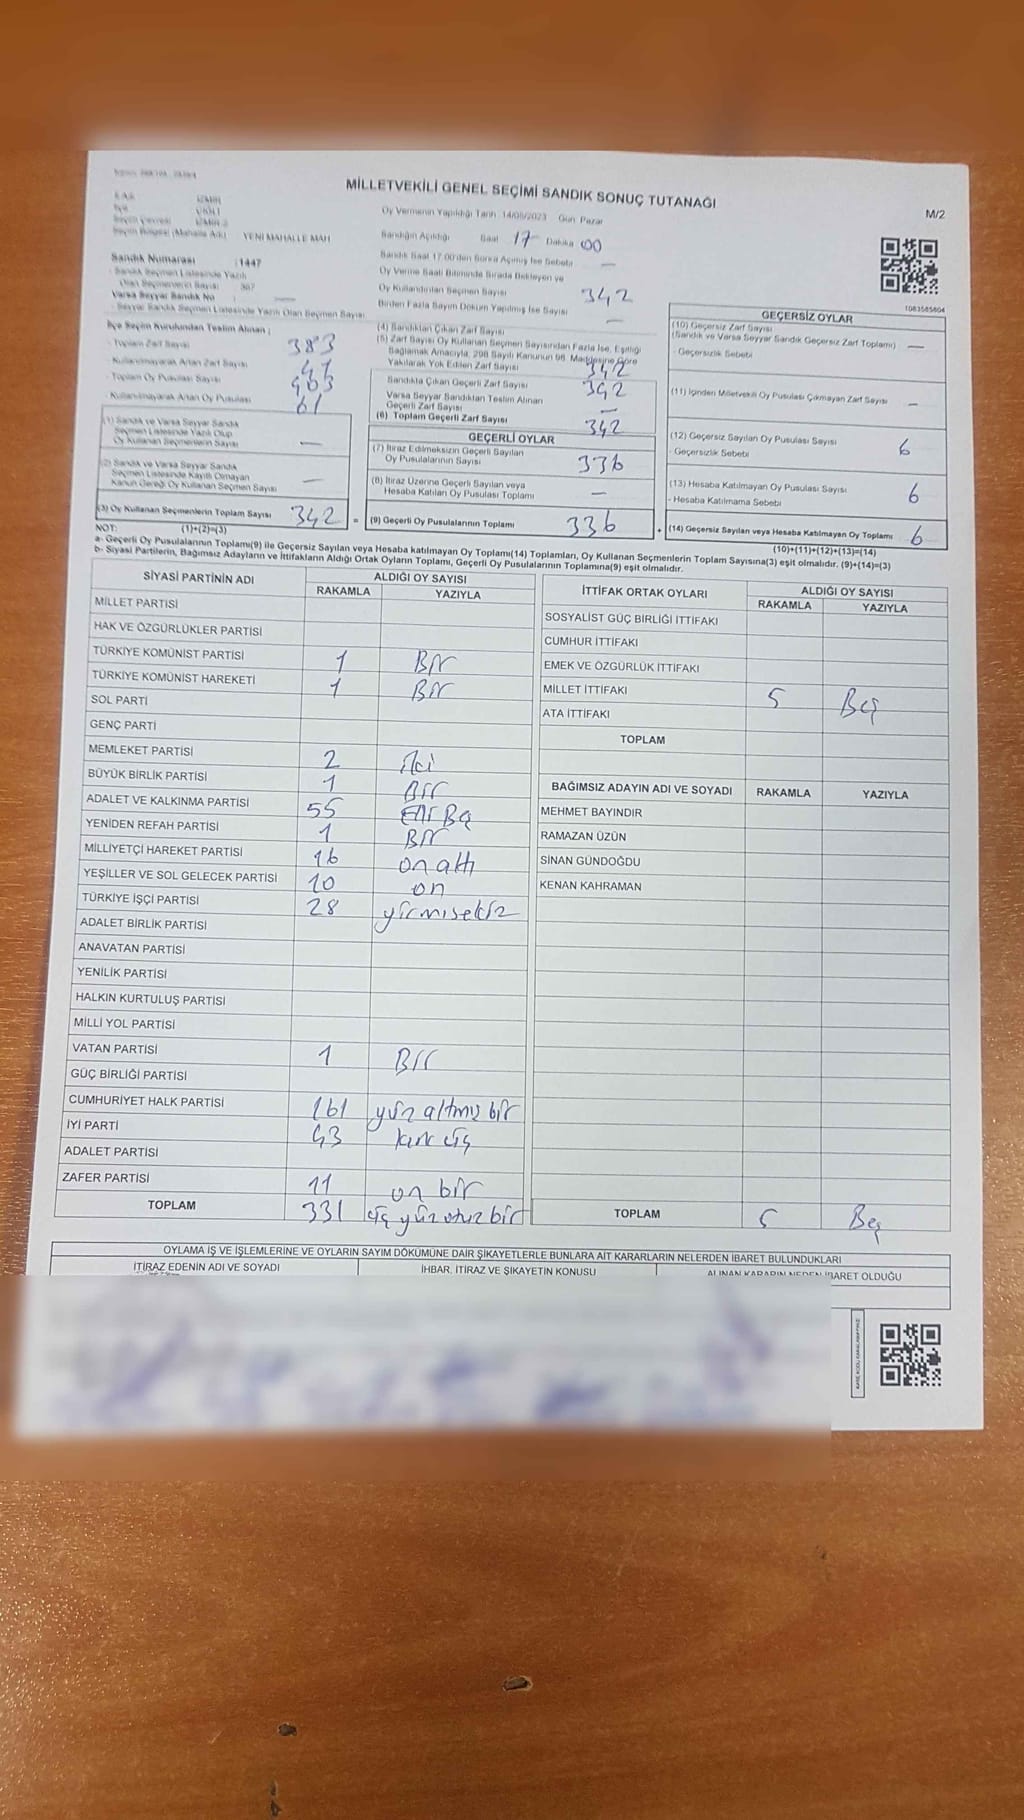 MİLLETVEKİLİ GENEL SEÇİMİ SANDIK SONUÇ TUTANAĞI
M/2
Oy Vermenin Yapıldığı Tarih 14/05/2023 Gün Pazar
YENİ MAHALLE MAH
Sandığın Açıldığı Saat 17 Dakika 00
Sandık Numarası :1447
Sandık Saat 17.00'den Sonra Açılmış İse Sebebi —
Oy Verme Saati Bitiminde Sırada Bekleyen ve
Oy Kullandırılan Seçmen Sayısı 342
Varsa Seyyar Sandık No
Birden Fazla Sayım Döküm Yapılmış İse Sayısı —
- Seyyar Sandık Seçmen Listesinde Yazılı Olan Seçmenlerin Sayısı
1083585804
İlçe Seçim Kurulundan Teslim Alınan ;
- Toplam Zarf Sayısı 383
- Kullanılmayarak Artan Zarf Sayısı
- Toplam Oy Pusulası Sayısı 403
- Kullanılmayarak Artan Oy Pusulası 61
(1) Sandık ve Varsa Seyyar Sandık
Seçmen Listesinde Yazılı Olup
Oy Kullanan Seçmenlerin Sayısı —
(2) Sandık ve Varsa Seyyar Sandık
Seçmen Listesinde Kayıtlı Olmayan
Kanun Gereği Oy Kullanan Seçmen Sayısı —
(3) Oy Kullanan Seçmenlerin Toplam Sayısı 342 =
(1)+(2)=(3)
(4) Sandıktan Çıkan Zarf Sayısı
(5) Zarf Sayısı Oy Kullanan Seçmen Sayısından Fazla İse, Eşitliği
Sağlamak Amacıyla, 298 Sayılı Kanunun 98. Maddesine Göre
Yakılarak Yok Edilen Zarf Sayısı 342
Sandıkta Çıkan Geçerli Zarf Sayısı 342
Varsa Seyyar Sandıktan Teslim Alınan
Geçerli Zarf Sayısı —
(6) Toplam Geçerli Zarf Sayısı 342
GEÇERLİ OYLAR
(7) İtiraz Edilmeksizin Geçerli Sayılan
Oy Pusulalarının Sayısı 336
(8) İtiraz Üzerine Geçerli Sayılan veya
Hesaba Katılan Oy Pusulası Toplamı —
(9) Geçerli Oy Pusulalarının Toplamı 336 +
GEÇERSİZ OYLAR
(10) Geçersiz Zarf Sayısı
(Sandık ve Varsa Seyyar Sandık Geçersiz Zarf Toplamı) —
- Geçersizlik Sebebi
(11) İçinden Milletvekili Oy Pusulası Çıkmayan Zarf Sayısı —
(12) Geçersiz Sayılan Oy Pusulası Sayısı 6
- Geçersizlik Sebebi
(13) Hesaba Katılmayan Oy Pusulası Sayısı 6
- Hesaba Katılmama Sebebi
(14) Geçersiz Sayılan veya Hesaba Katılmayan Oy Toplamı 6
(10)+(11)+(12)+(13)=(14)
NOT:
a- Geçerli Oy Pusulalarının Toplamı(9) ile Geçersiz Sayılan veya Hesaba katılmayan Oy Toplamı(14) Toplamları, Oy Kullanan Seçmenlerin Toplam Sayısına(3) eşit olmalıdır. (9)+(14)=(3)
b- Siyasi Partilerin, Bağımsız Adayların ve İttifakların Aldığı Ortak Oyların Toplamı, Geçerli Oy Pusulalarının Toplamına(9) eşit olmalıdır.
SİYASİ PARTİNİN ADI ALDIĞI OY SAYISI
RAKAMLA YAZIYLA
MİLLET PARTİSİ
HAK VE ÖZGÜRLÜKLER PARTİSİ
TÜRKİYE KOMÜNİST PARTİSİ 1 Bir
TÜRKİYE KOMÜNİST HAREKETİ 1 Bir
SOL PARTİ
GENÇ PARTİ
MEMLEKET PARTİSİ 2 iki
BÜYÜK BİRLİK PARTİSİ 1 Bir
ADALET VE KALKINMA PARTİSİ 55
YENİDEN REFAH PARTİSİ 1 Bir
MİLLİYETÇİ HAREKET PARTİSİ 16 on altı
YEŞİLLER VE SOL GELECEK PARTİSİ 10 on
TÜRKİYE İŞÇİ PARTİSİ 28 yirmisekiz
ADALET BİRLİK PARTİSİ
ANAVATAN PARTİSİ
YENİLİK PARTİSİ
HALKIN KURTULUŞ PARTİSİ
MİLLİ YOL PARTİSİ
VATAN PARTİSİ 1 Bir
GÜÇ BİRLİĞİ PARTİSİ
CUMHURİYET HALK PARTİSİ 161 yüz altmış bir
İYİ PARTİ 43 kırk üç
ADALET PARTİSİ
ZAFER PARTİSİ 11 on bir
TOPLAM 331 üç yüz otuz bir
İTTİFAK ORTAK OYLARI ALDIĞI OY SAYISI
RAKAMLA YAZIYLA
SOSYALİST GÜÇ BİRLİĞİ İTTİFAKI
CUMHUR İTTİFAKI
EMEK VE ÖZGÜRLÜK İTTİFAKI
MİLLET İTTİFAKI 5 Beş
ATA İTTİFAKI
TOPLAM
BAĞIMSIZ ADAYIN ADI VE SOYADI RAKAMLA YAZIYLA
MEHMET BAYINDIR
RAMAZAN ÜZÜN
SİNAN GÜNDOĞDU
KENAN KAHRAMAN
TOPLAM 5 Beş
OYLAMA İŞ VE İŞLEMLERİNE VE OYLARIN SAYIM DÖKÜMÜNE DAİR ŞİKAYETLERLE BUNLARA AİT KARARLARIN NELERDEN İBARET BULUNDUKLARI
İTİRAZ EDENİN ADI VE SOYADI İHBAR, İTİRAZ VE ŞİKAYETİN KONUSU ALINAN KARARIN NEDEN İBARET OLDUĞU